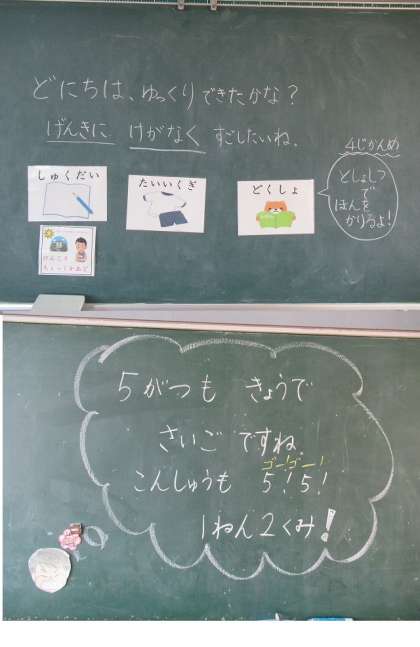 どにちは、ゆっくりできたかな？
げんきに けがなく すごしたいね。
4じかんめ
としょしつ
で
ほんを
かりるよ!
しゅくだい
たいいくぎ
どくしょ
けんこう
ちぇっくかあど
5がつも きょうで
さいご ですね
ゴー!ゴー!
こんしゅうも 5!5!
1ねん2くみ!